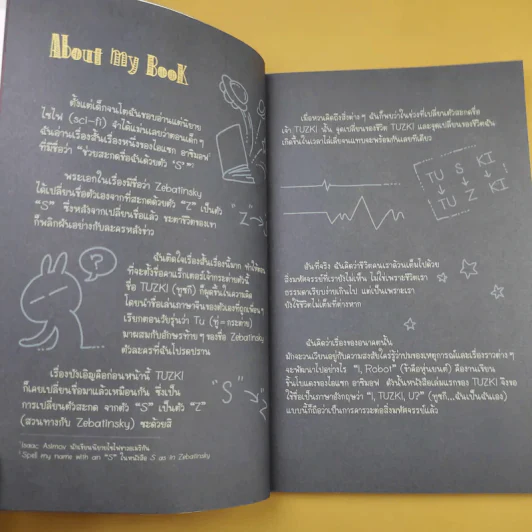 About my Book
ตั้งแต่เด็กจนโตฉันชอบอ่านแต่นิยาย
ไซไฟ (sci-fi) จำได้แม่นเลยว่าตอนเด็กๆ
ฉันอ่านเรื่องสั้นเรื่องหนึ่งของไอแซก อาซิมอฟ¹
ที่มีชื่อว่า "ช่วยสะกดชื่อฉันด้วยตัว "S"²
พระเอกในเรื่องมีชื่อว่า Zebatinsky
ได้เปลี่ยนชื่อตัวเองจากที่สะกดด้วยตัว "Z" เป็นตัว
"S" ซึ่งหลังจากเปลี่ยนชื่อแล้ว ชะตาชีวิตของเขา
ก็พลิกผันอย่างกับละครหลังข่าว
"Z"
ฉันติดใจเรื่องสั้นเรื่องนี้มาก
ที่จะตั้งชื่อคาแร็กเตอร์เจ้ากระต่ายตัวนี้
ชื่อ TUZKI (ทูซกิ) ก็ผุดขึ้นในความคิด
โดยนำชื่อเล่นภาษาจีนของตัวเองที่ถูกเพื่อนๆ
เรียกตอนวัยรุ่นว่า Tu (ทู่=กระต่าย)
มาผสมกับอักษรท้ายๆ ของชื่อ Zebatinsky
ตัวละครที่ฉันโปรดปราน
?
เรื่องบังเอิญคือก่อนหน้านี้ TUZKI
ก็เคยเปลี่ยนชื่อมาแล้วเหมือนกัน ซึ่งเป็น
การเปลี่ยนตัวสะกด จากตัว "S" เป็นตัว "Z"
(สวนทางกับ Zebatinsky) ซะด้วยสิ
"S"
¹ Isaac Asimov นักเขียนนิยายไซไฟชาวอเมริกัน
² Spell my name with an "S" ในหนังสือ S as in Zebatinsky
เมื่อหวนคิดถึงสิ่งต่างๆ ฉันก็พบว่าในช่วงที่เปลี่ยนตัวสะกดชื่อ
เจ้า TUZKI นั้น จุดเปลี่ยนของชีวิต TUZKI และจุดเปลี่ยนของชีวิตฉัน
เกิดขึ้นในเวลาไล่เลี่ยจนแทบจะพร้อมกันเลยทีเดียว
TU S KI
TU Z KI
อันที่จริง ฉันคิดว่าชีวิตคนเราล้วนเต็มไปด้วย
สิ่งมหัศจรรย์ที่เราบังไม่เห็น ไม่ใช่เพราะชีวิตเรา
ธรรมดาเรียบง่ายเกินไป แต่เป็นเพราะเรา
ฉันคิดว่าเรื่องของอนาคตนั้น
"I, Robot" (ข้าคือหุ่นยนต์) คืองานเขียน
ชิ้นโบแดงของไอแซก อาซิมอฟ ดังนั้นหนังสือเล่มแรกของ TUZKI จึงขอ
ใช้ชื่อเป็นภาษาอังกฤษว่า "I, TUZKI, U?" (ทูซกิ...ฉันเป็นฉันเอง)
แบบนี้ก็ถือว่าเป็นการคารวะต่อสิ่งมหัศจรรย์แล้ว